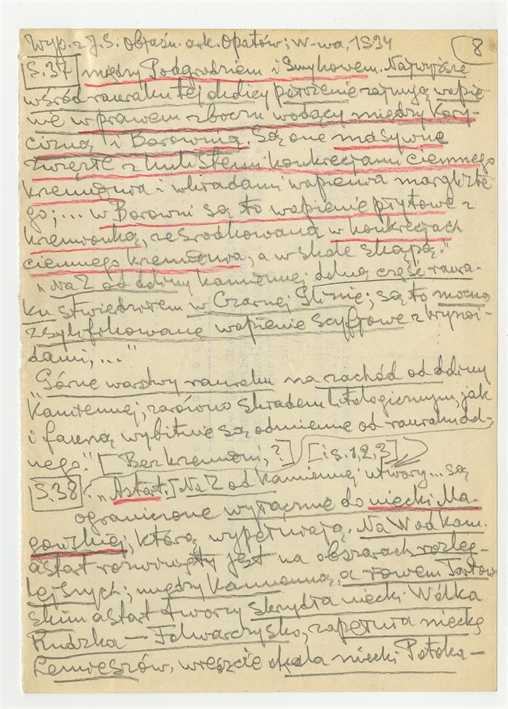 Wyp. z J. S. objaśn. ark. Opatów; W-wa, 1934
8
S.37 między Podgrodziem i Smykowem. Najwyższe
wśród rauraku tej okolicy położenie zajmują wapie-
nie w prawem zboczu wodącej między Kary-
cizną i Borownią. Są one masywne
zwięzłe z kulistemi konkrecjami ciemnego
krzemienia i wkładami wapienia marglste
go;... w Borowni są to wapienie płytowe z
krzemionką, ześrodkowaną w konkrecjach
ciemnego krzemienia, a w skale skąpą."
"Na Z od doliny Kamiennej, dolną część raura-
ku stwierdziłem w Czarnej Glinie; są to mocno
zsylifikowane wapienie scyfjowe z brynoi-
dami,..."
"Górne warstwy rauraku na zachód od doliny
Kamiennej, zarówno składem litologicznym, jak
i fauną wybitnie są odmienne od rauraku dol-
nego." [Bez krzemieni,?] [i s.1,2,3]
S.38. "Astart. Na Z od Kamiennej utwory... są
ograniczone wyłącznie do niecki Ma-
gońskiej, którą wypełniają. Na W od Kam.
astart rozwinięty jest na obszarach rozleg-
lejszych; między Kamienną, a rowem Tarłow
skim astart tworzy skrzydła niecki Wólka
Rudzka — Folwarczysko, zapełnia nieckę
Lemieszów, wreszcie okala nieckę Potoka —